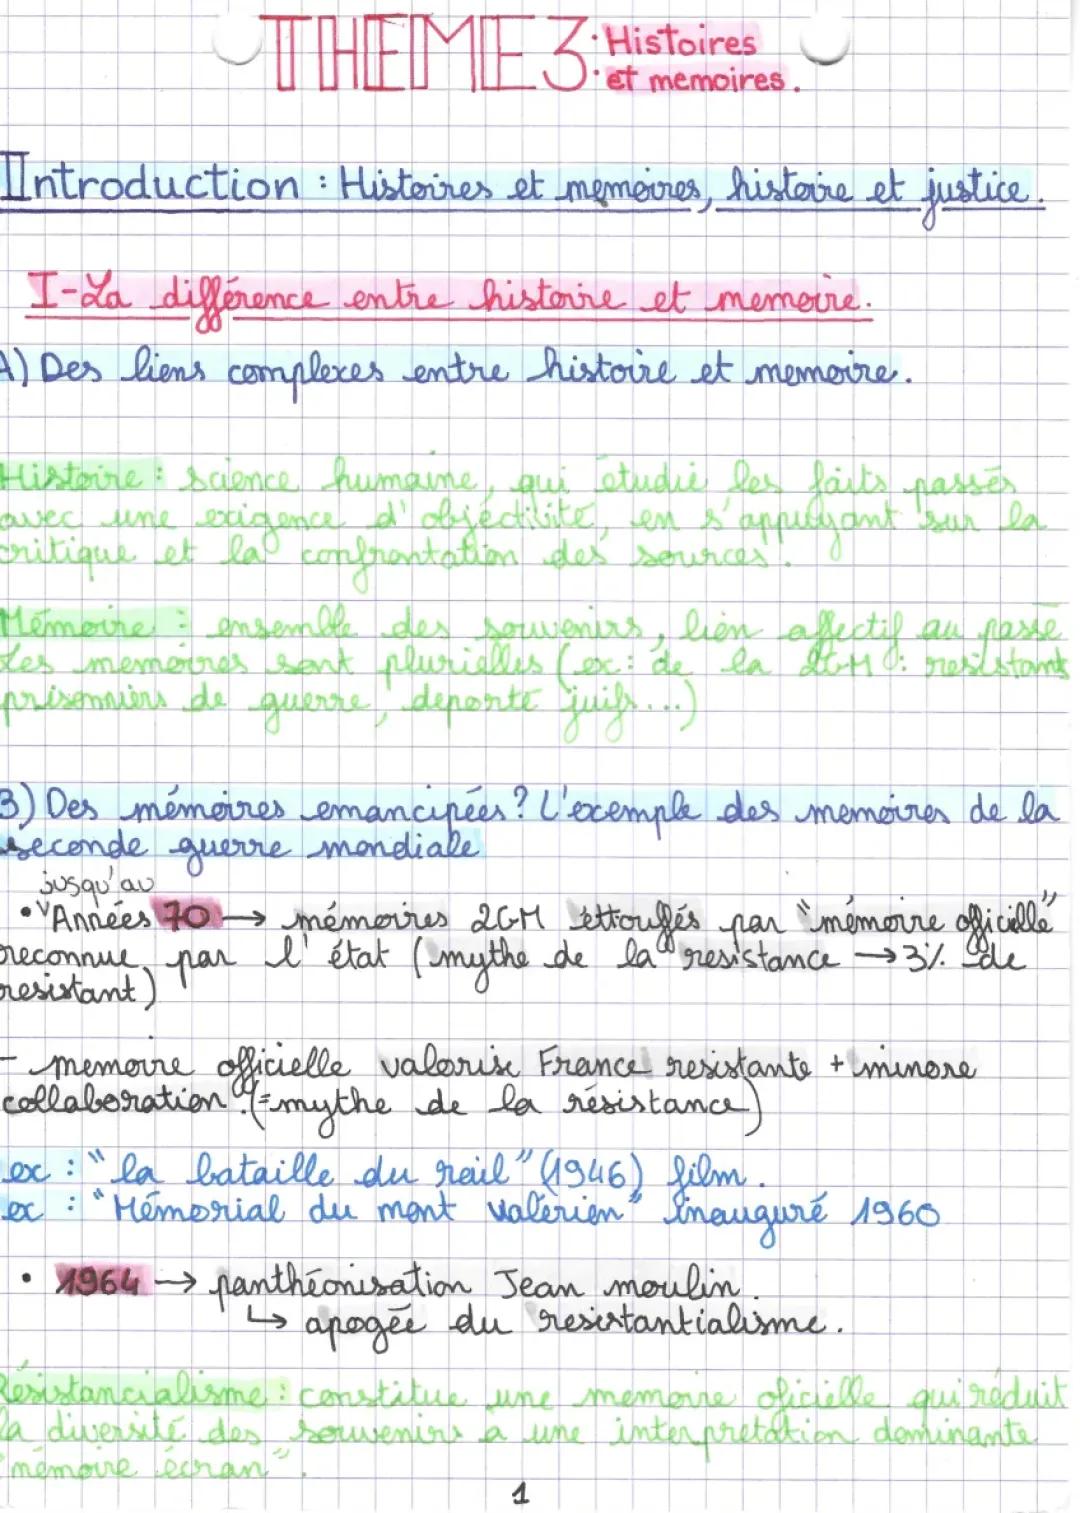 THEME 3: Histoires
et memoires.
Introduction : Histoires et memoires, histoire et justice.
I-La différence entre histoire et memoire.
A) Des liens complexes entre histoire et memoire.
Histoire : science humaine, qui étudie les faits passés
avec une exigence d'objectivité, en s'appuyant sur la
critique et la confrontation des sources.
Mémoire : ensemble des souvenirs, lien affectif au passé
Les memoires sont plurielles (ex: de la 2GM : resistants
prisonniers de guerre, deporté juifs...)
B) Des mémoires emancipées? L'exemple des memoires de la
seconde guerre mondiale
jusqu'au
• Années 70 → mémoires 2GM éttouffés par "mémoire officielle"
reconnue par l'état (mythe de la resistance → 3% de
resistant)
- memoire officielle valorise France resistante + minore
collaboration (=mythe de la résistance)
ex : "la bataille du rail" (1946) film.
ex : "Mémorial du mont valérien" inauguré 1960
• 1964 → panthéonisation Jean moulin.
↳ apogée du resistantialisme.
Résistancialisme : constitue une memoire oficielle qui réduit
la diversité des souvenirs a une interpretation dominante
"mémoire écran".
1